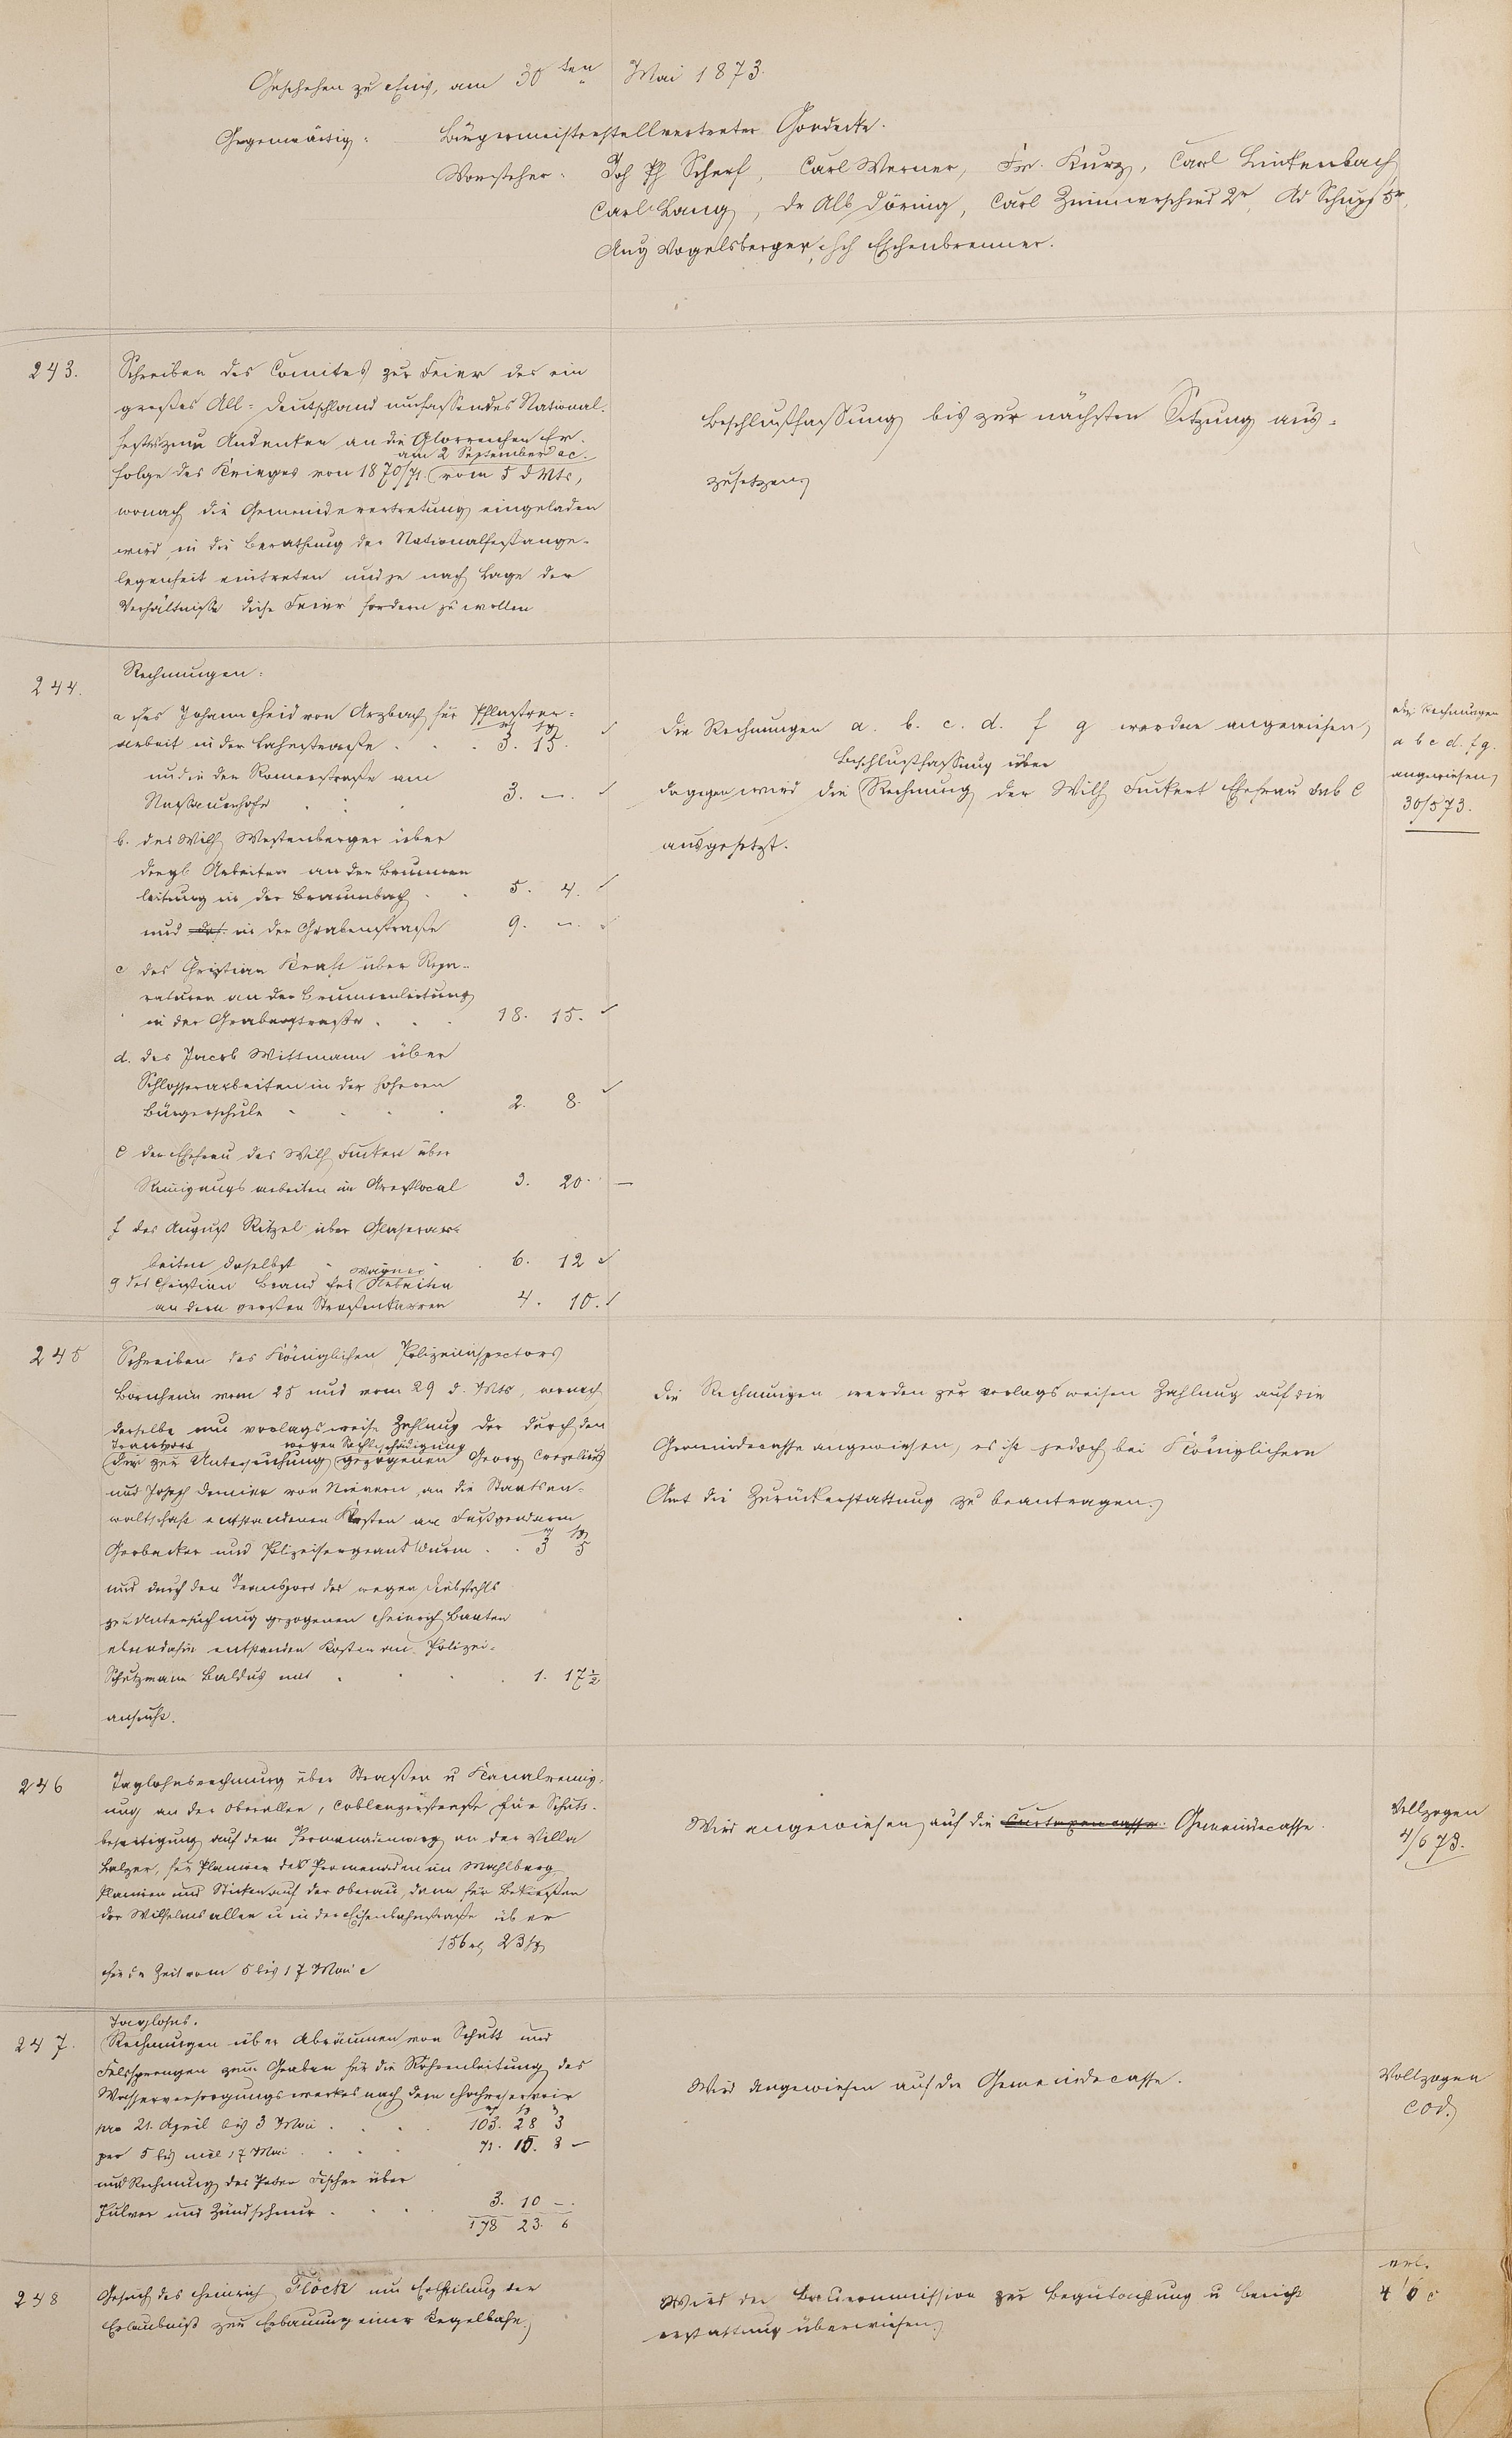 Geschehen zu Ems, am 30ten Mai 1873.
Gegenwärtig: Bürgermeisterstellvertreter Goedecke.
Vorsteher: Joh Ph Scherf, Carl Werner, Fr. Kurz, Carl Linkenbach,
Carl Lang, Dr Alb Döring, Carl Zimmerschied 2r, Ad Schupp 5r,
Aug Vogelsberger, Hch Eschenbrenner.
243.
Schreiben des Comites zur Feier des ein
großes All-Deutschland umfassendes National-
festes zum Andenken an die Glorreichen Er-
am 2 September ac.
folge des Krieges von 1870/71. vom 5 d Mts,
wonach die Gemeindevertretung eingeladen
wird, in die Berathung der Nationalfestange-
legenheit eintreten und je nach Lage der
Verhältnisse diese Feier fördern zu wollen
Beschlußfassung bis zur nächsten Sitzung aus-
zusetzen.
244.
Rechnungen:
a des Johann Heid von Arzbach für Pflaster-
arbeit in der Lahnstraße . . . 3. 15.
und in der Römerstraße am
Nassauerhofe . . . 3. —.
b. des Wilh Westenberger über
dergl Arbeiten an der Brunnen
leitung in der Braunbach . . 5. 4.
und das. in der Grabenstraße 9. —.
c des Christian Kraft über Repa-
raturen an der Brunnenleitung
in der Grabenstraße . . . 18. 15.
d. des Jacob Wittmann über
Schlosserarbeiten in der höheren
Bürgerschule . . . . 2. 8.
e der Ehefrau des Wilh Finkert über
Reinigungsarbeiten im Arrestlocal 3. 20. —
f des August Ritzel über Glaserar-
beiten daselbst . . . 6. 12
Wagner
g des Christian Brand für Arbeiten
an dem großen Straßenkarren 4. 10.
Die Rechnungen a. b. c. d. f g werden angewiesen,
Beschlußfassung über
dagegen wird die Rechnung der Wilh Finkert Ehefrau sub e
ausgesetzt.
die Rechnungen
a b c d. f g.
angewiesen
30/5 73.
245
Schreiben des Königlichen Polizeiinspectors
Bornheim vom 25 und vom 29 d. Mts, wonach
derselbe um vorlagsweise Zahlung der durch den
Transport wegen Sachbeschädigung
der zur Untersuchung gezogenen Georg Crezelius
und Joseph Demier von Nievern, an die Staatsan-
waltschaft entstandenen Kosten an Fußgendarm
Gerbacker und Polizeisergeant Wurm . . 3 5
und durch den Transport des wegen Diebstahls
zur Untersuchung gezogenen Heinrich Bauten
ebendahin entstanden Kosten an Polizei-
Schutzmann Baldus mit . . . . 1. 17½
ansucht.
Die Rechnungen werden zur vorlagsweisen Zahlung auf die
Gemeindecasse angewiesen, es ist jedoch bei Königlichem
Amt die Zurückerstattung zu beantragen.
246
Taglohnsrechnung über Straßen u Kanalreinig-
ung an der Oberallee, Coblenzerstraße für Schutt-
beseitigung auf dem Promenadenweg an der Villa
Balzer, für Planiren des Promenaden im Mahlberg
Planiren und Sticken auf der Oberau, dann für Bekiesen
der Wilhelmsallee u in der Eisenbahnstraße über
156 rl 23 sg
für die Zeit vom 5 bis 17 Mai c
Wird angewiesen auf die Curtaxencasse. Gemeindecasse.
Vollzogen
4/6 73.
247.
Taglohns.
Rechnungen über Abräumen von Schutt und
Felssprengen zum Graben für die Röhrenleitung des
Wasserversorgungswerkes nach dem Hochreservoir
pro 21. April bis 3 Mai . . . . 103. 28 3
per 5 bis incl 17 Mai . . . . 71. 15. 3 —
und Rechnung des Peter Fischer über
Pulver und Zündschnur . . . . 3. 10 —.
178 23. 6
Wird angewiesen auf die Gemeindecasse.
Vollzogen
eod.
248
Gesuch des Heinrich Flöck um Ertheilung der
Erlaubniß zur Erbauung einer Kegelbahn.
Wird der Baucommission zur Begutachtung u Bericht
erstattung überwiesen.
erl.
4/6 c